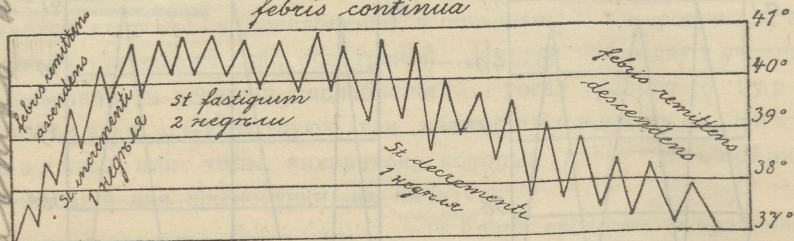 febris continua
41°
40°
39°
38°
37°
febris remittens
ascendens
St. incrementi
1 неделя
st fastigium
2 недели
St decrementi
1 неделя
febris remittens
descendens